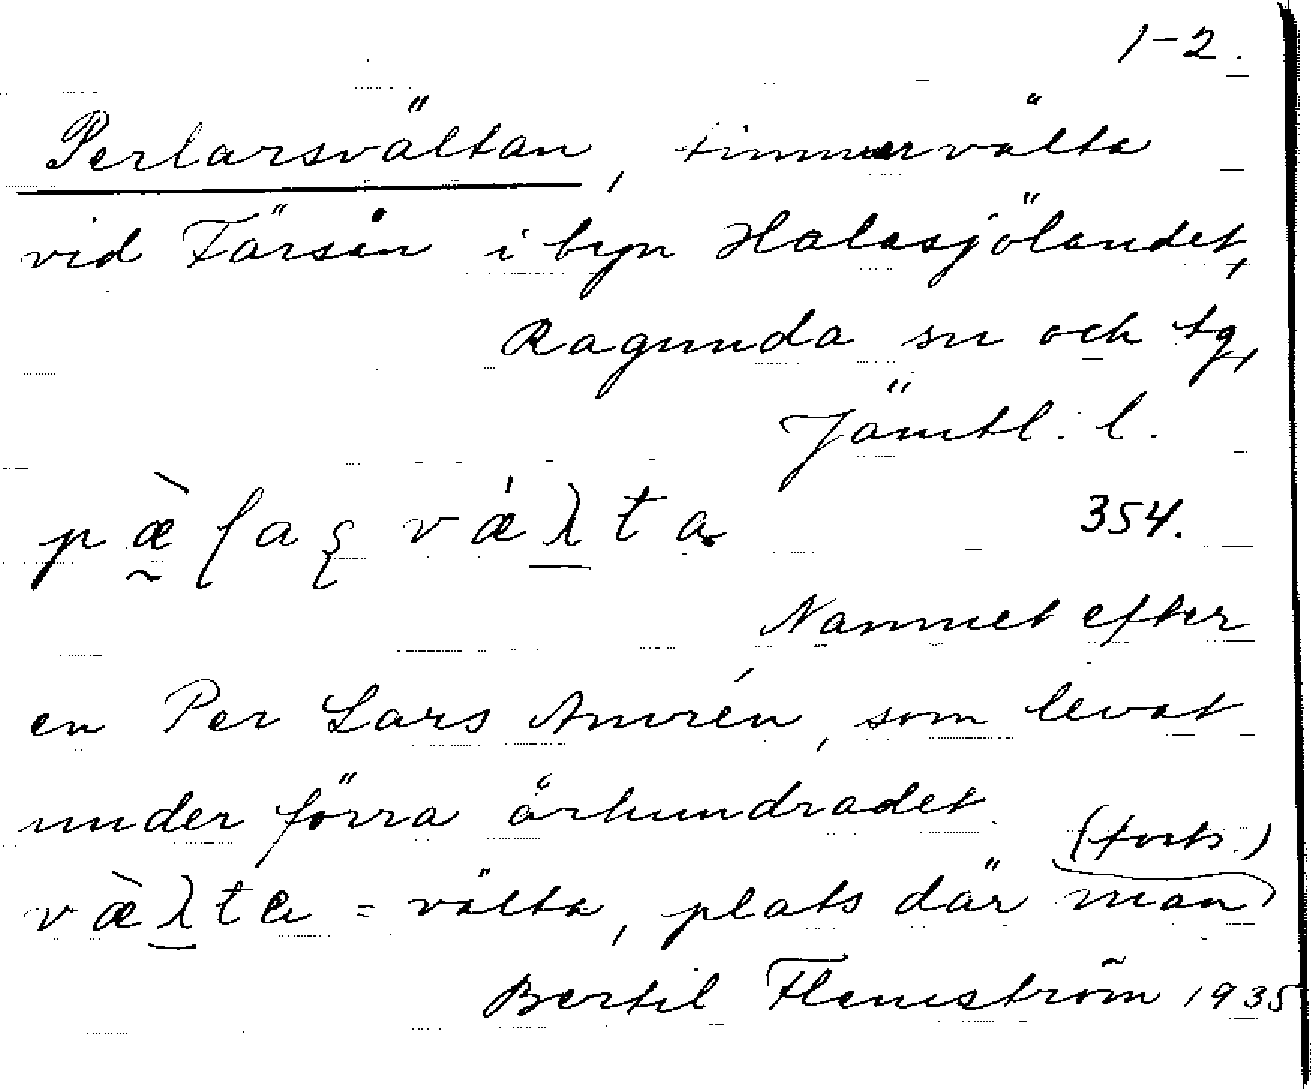 1-2.
Perlarsvältan, timmervälta
vid Färsån i byn Halasjölandet,
Ragunda sn och tg,
Jämtl. l.
354.
Namnet efter
en Per Lars Amrén, som levat
under förra århundradet.
(forts.)
= välta, plats där man
Bertil Flemström 1935